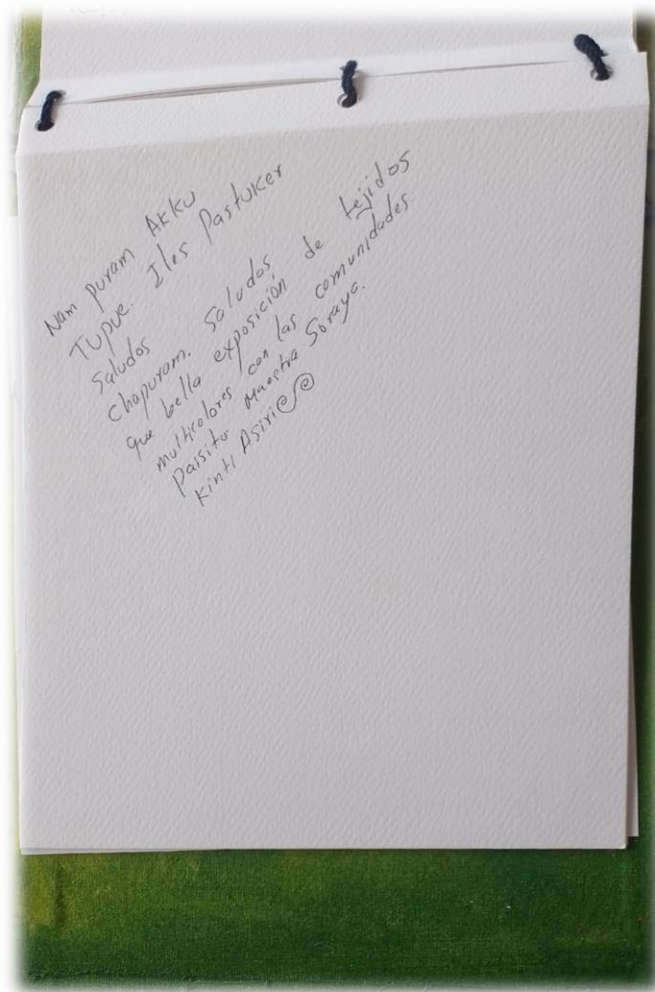 Nam puram Akku
Tupue. Iles Pastuker
Saludos
Chapuram. Saludos
que bella exposición de tejidos
multicolores con las comunidades
Paisitu Maestra Soraya.
Kinti Asiri